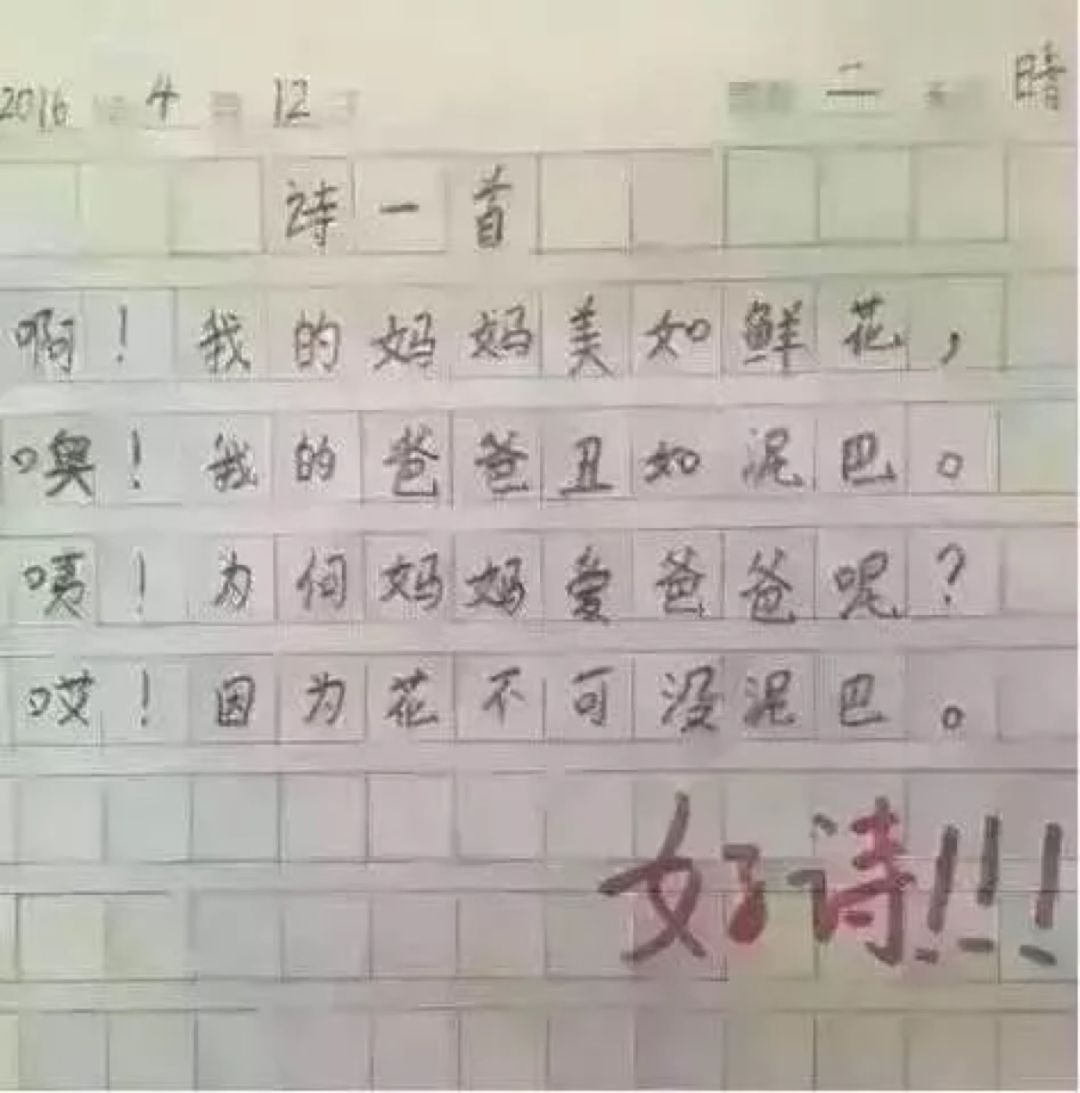 2016 4 12 二 晴
诗一首
啊!我的妈妈美如鲜花,
噢!我的爸爸丑如泥巴。
咦!为何妈妈爱爸爸呢?
哎!因为花不可没泥巴。
好诗!!!